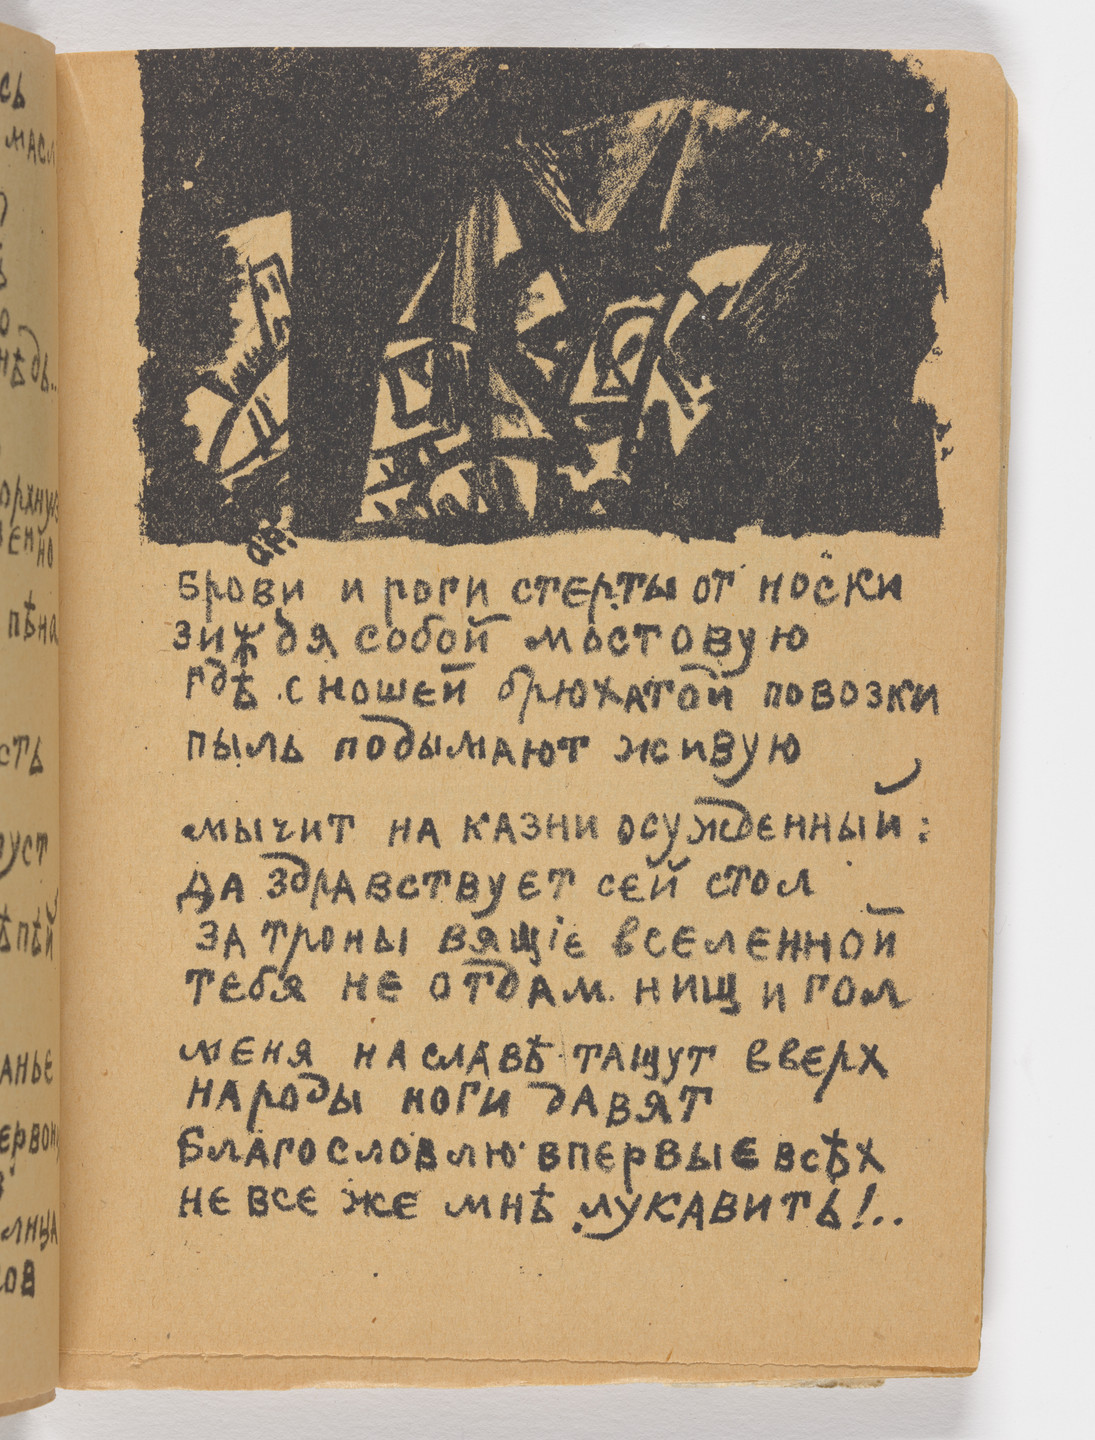 брови и роги стерты от носки
зиждя собой мостовую
гдѣ с ношей брюхатой повозки
пыль подымают живую
мычит на казни осужденный:
да здравствует сей стол
за троны вящіе вселенной
тебя не отдам нищ и гол
меня на славѣ тащут вверх
народы ноги давят
благословлю впервые всѣх
не все же мнѣ лукавить!..